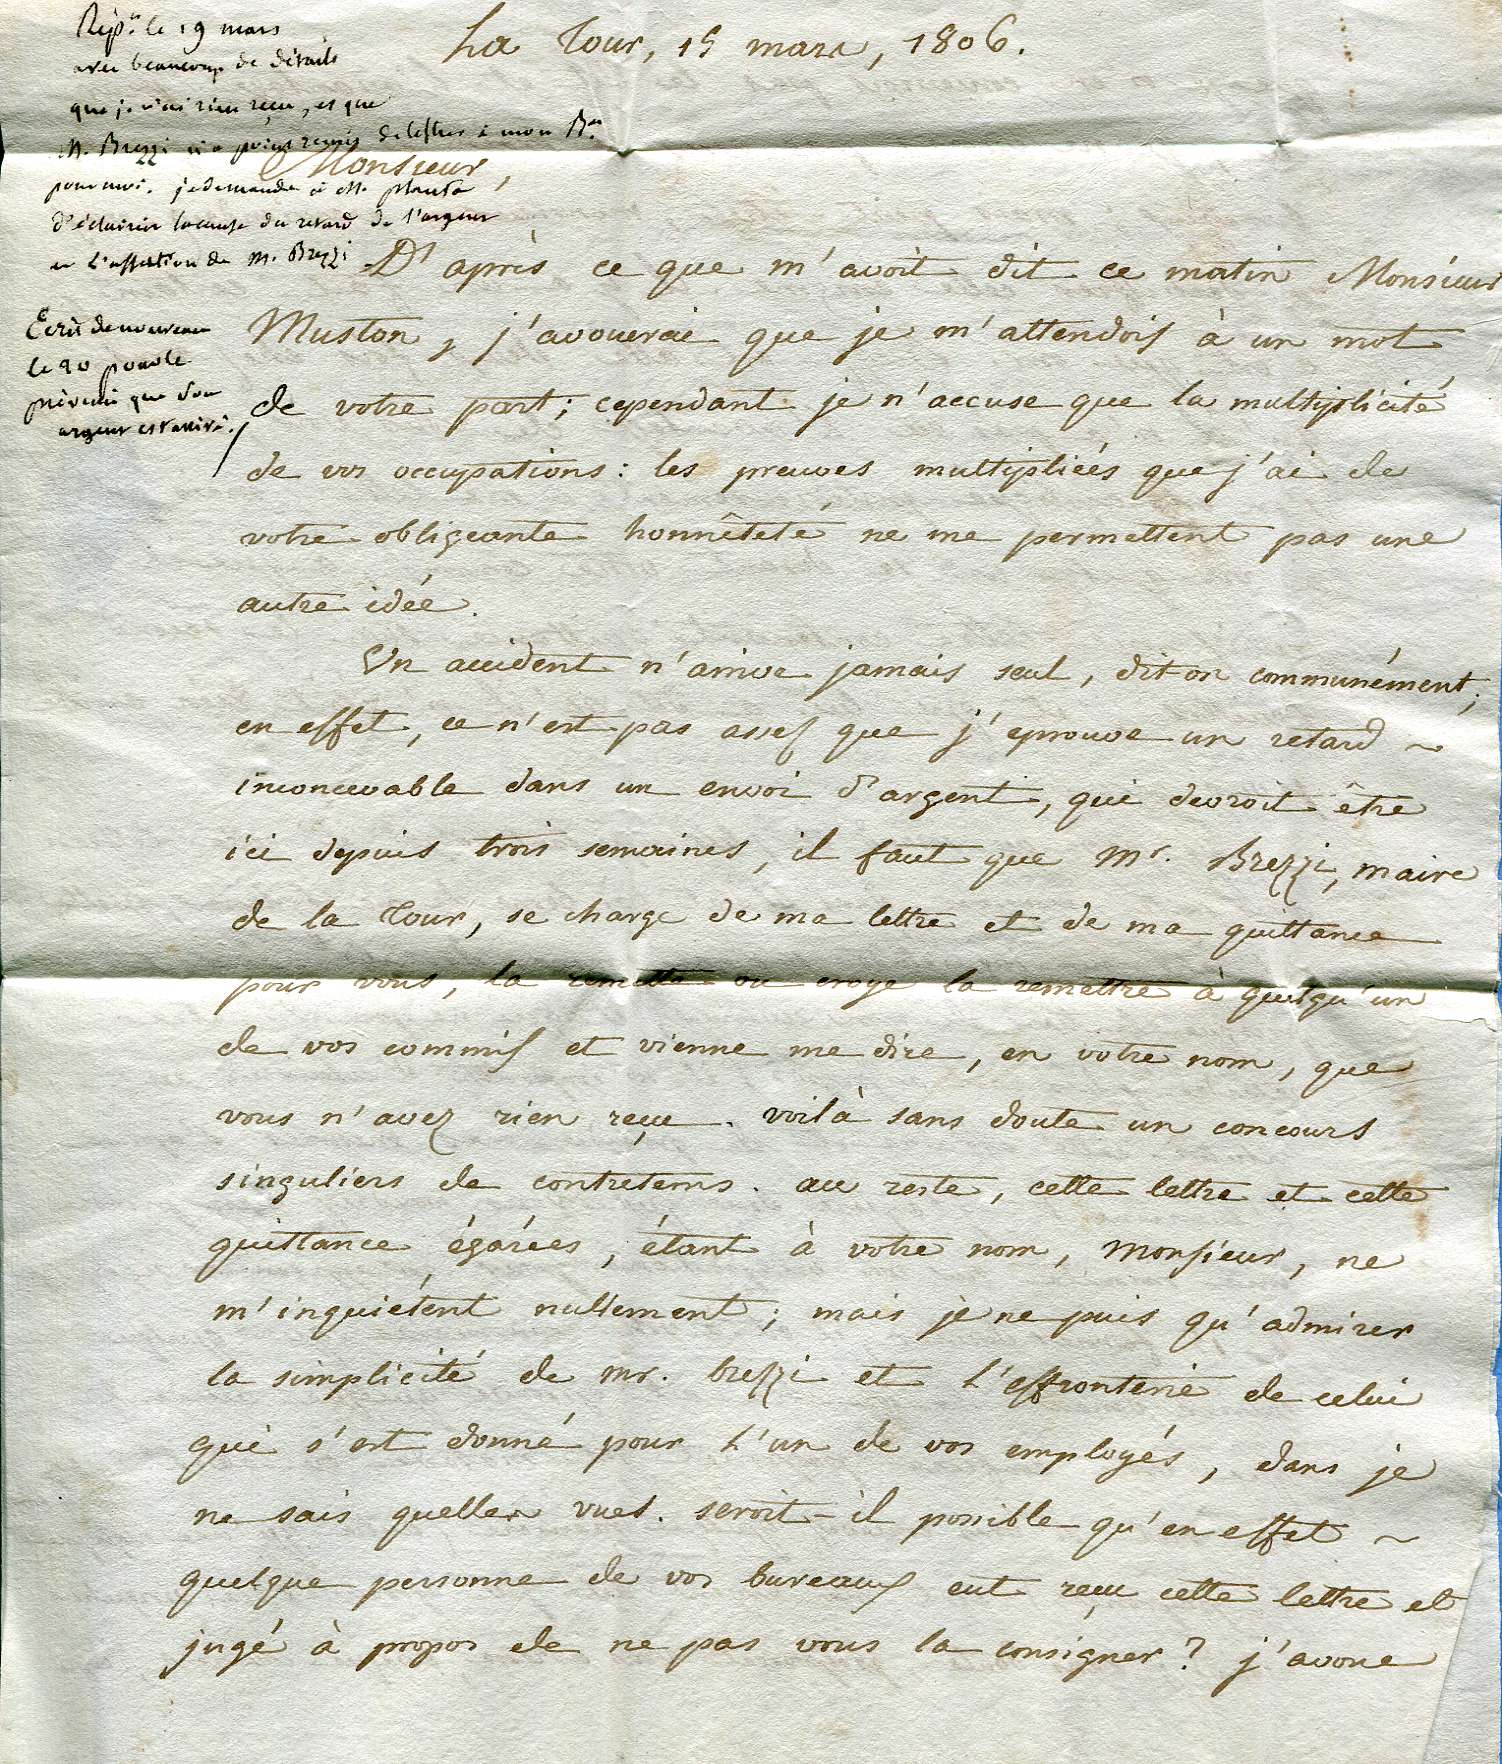 La Tour, 15 mars, 1806.
Rép.^e le 19 mars
avec beaucoup de détails
que je n'ai rien reçu, et que
M. Brezzi n'a point remis de lettres à mon B.^au
pour moi. je demande à M. Planta
d'éclaircir la cause du retard de l'argent
et l'assertion de M. Brezzi
Ecrit de nouveau
le 20 pour le
prévenir que son
argent est arrivé.
Monsieur,
D'après ce que m'avoit dit ce matin Monsieur
Muston, j'avouerai que je m'attendois à un mot
de votre part; cependant je n'accuse que la multiplicité
de vos occupations: les preuves multipliées que j'ai de
votre obligeante honnêteté ne me permettent pas une
autre idée.
Un accident n'arrive jamais seul, dit-on communément;
en effet, ce n'est pas assez que j'éprouve un retard ~
inconcevable dans un envoi d'argent, qui devroit être
ici depuis trois semaines, il faut que Mr. Brezzi, maire
de la Tour, se charge de ma lettre et de ma quittance
pour vous, la remette ou croye la remettre à quelqu'un
de vos commis et vienne me dire, en votre nom, que
vous n'avez rien reçu. voilà sans doute un concours
singuliers de contretems. au reste, cette lettre et cette
quittance égarées, étant à votre nom, Monsieur, ne
m'inquiétent nullement; mais je ne puis qu'admirer
la simplicité de mr. brezzi et l'effronterie de celui
qui s'est donné pour l'un de vos employés, dans je
ne sais quelles vues. seroit-il possible qu'en effet ~
quelque personne de vos bureaux eut reçu cette lettre et
jugé à propos de ne pas vous la consigner? j'avoue